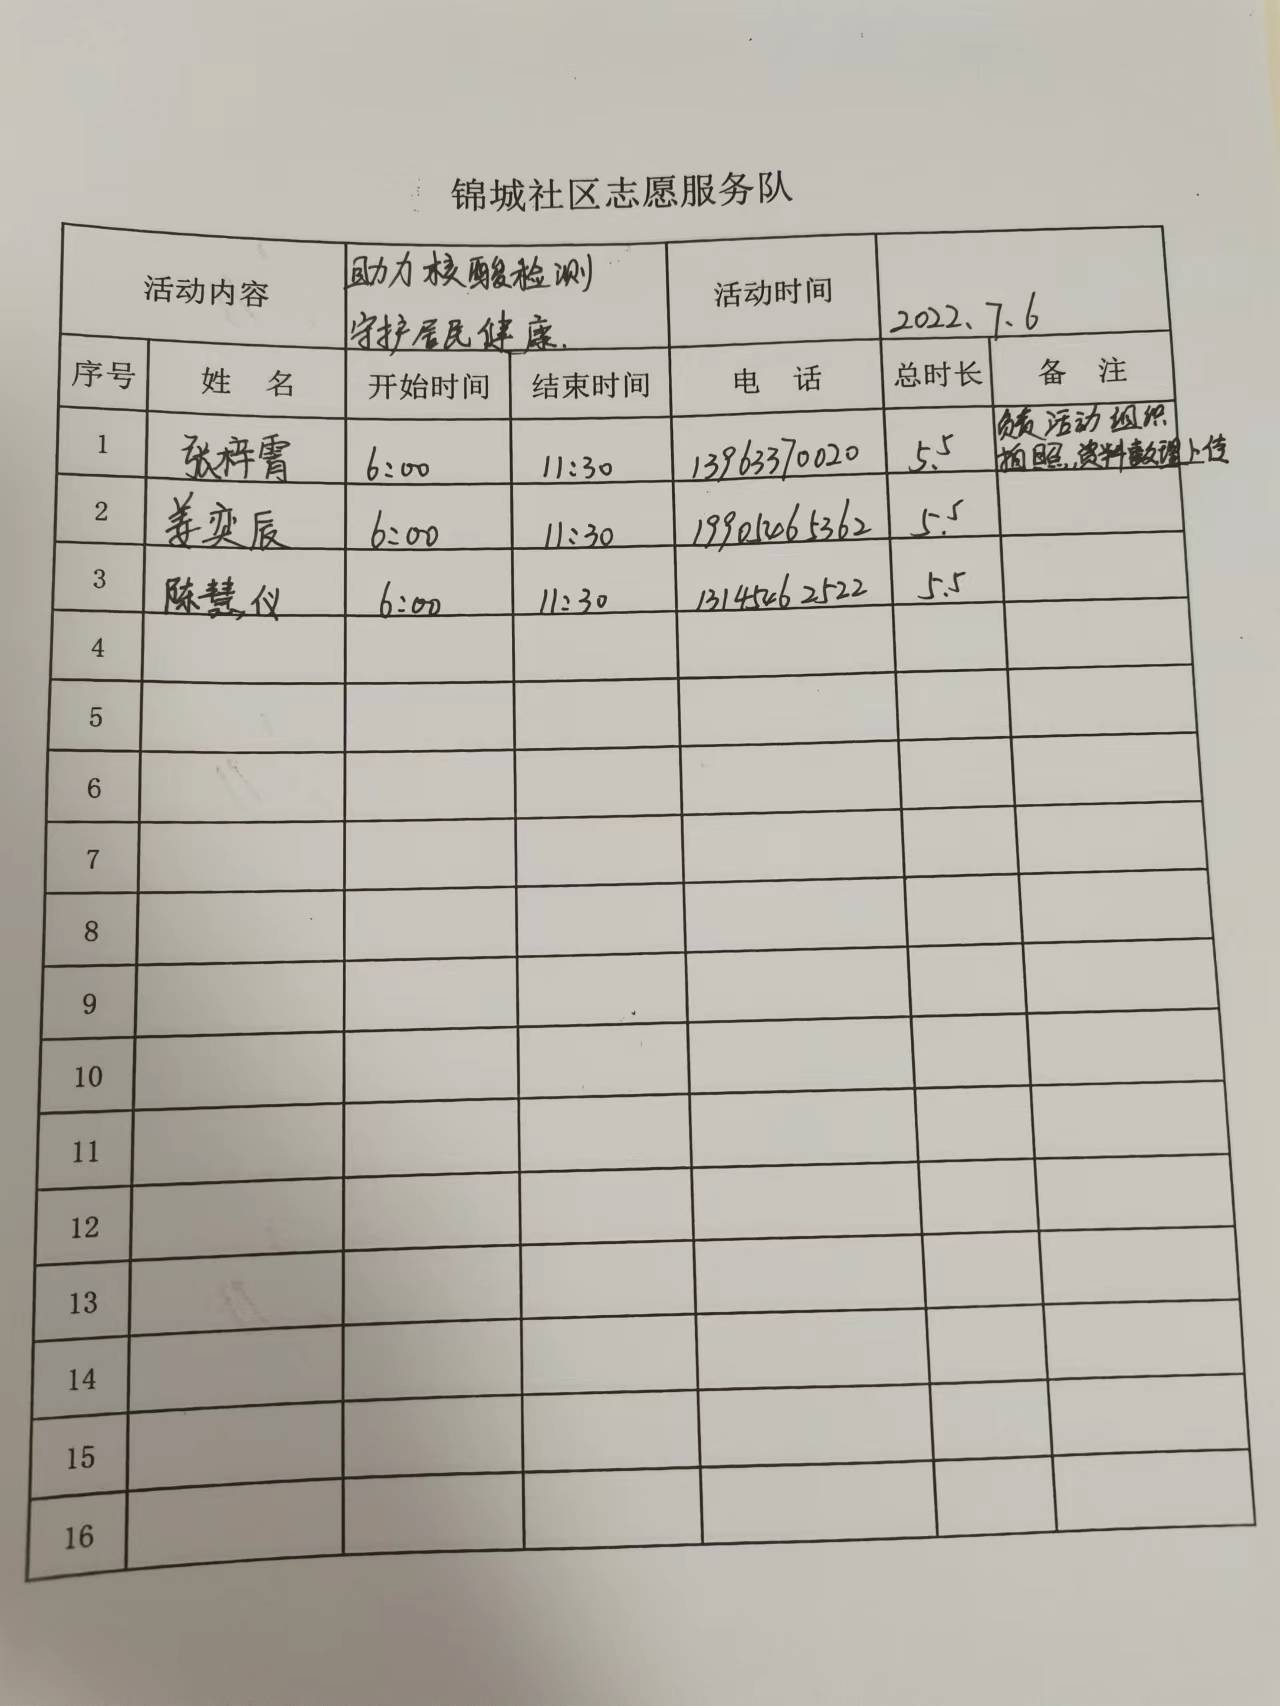 锦城社区志愿服务队
活动内容 助力核酸检测 守护居民健康. 活动时间 2022、7、6
序号 姓 名 开始时间 结束时间 电 话 总时长 备 注
1 张梓霄 6:00 11:30 13963370020 5.5 负责活动组织 拍照、资料整理上传
2 姜奕辰 6:00 11:30 19905465362 5.5
3 陈慧仪 6:00 11:30 13145462522 5.5
4
5
6
7
8
9
10
11
12
13
14
15
16